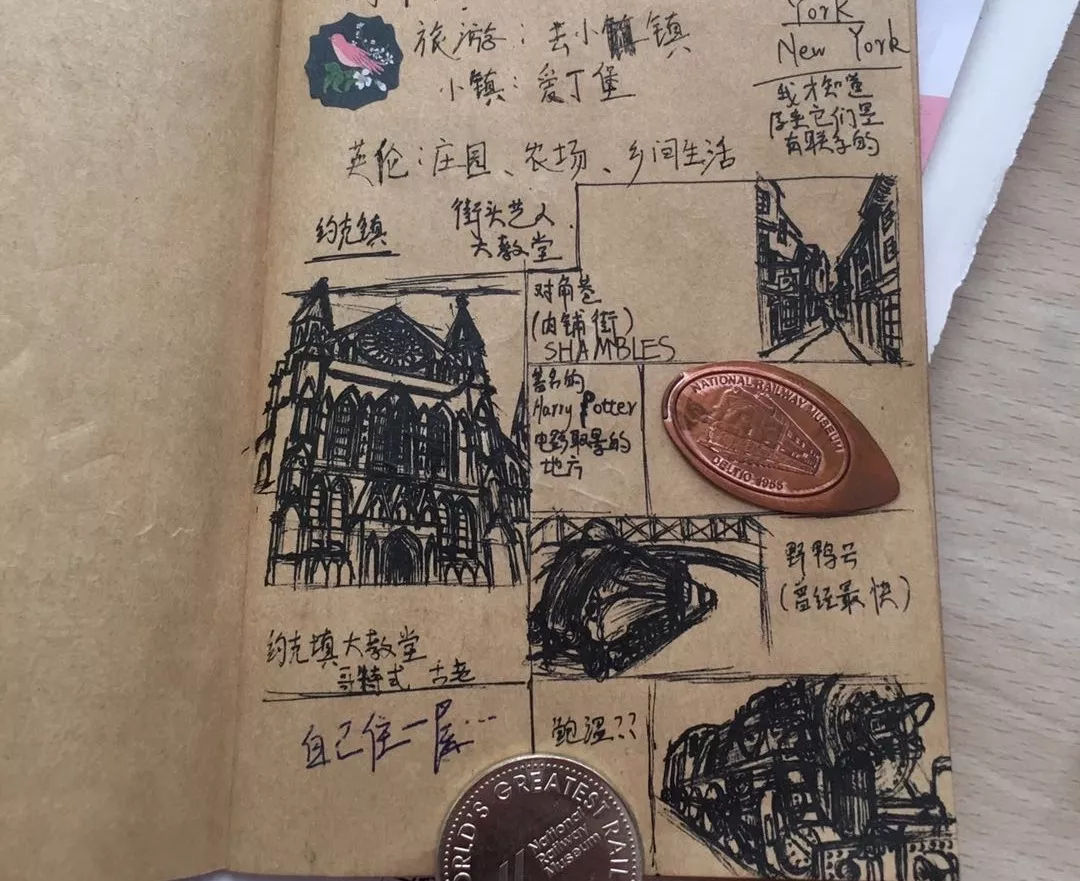 旅游：去小镇
小镇：爱丁堡
York
New York
我才知道
原来它们是
有联系的
英伦：庄园、农场、乡间生活
约克镇
街头艺人
大教堂
对角巷
(肉铺街)
SHAMBLES
著名的
Harry Potter
电影取景的
地方
NATIONAL RAILWAY MUSEUM
DELTIC 1955
野鸭号
(曾经最快)
约克镇大教堂
哥特式 古老
自己住一层…
鲍温??
WORLD'S GREATEST RAIL
National
Railway
Museum